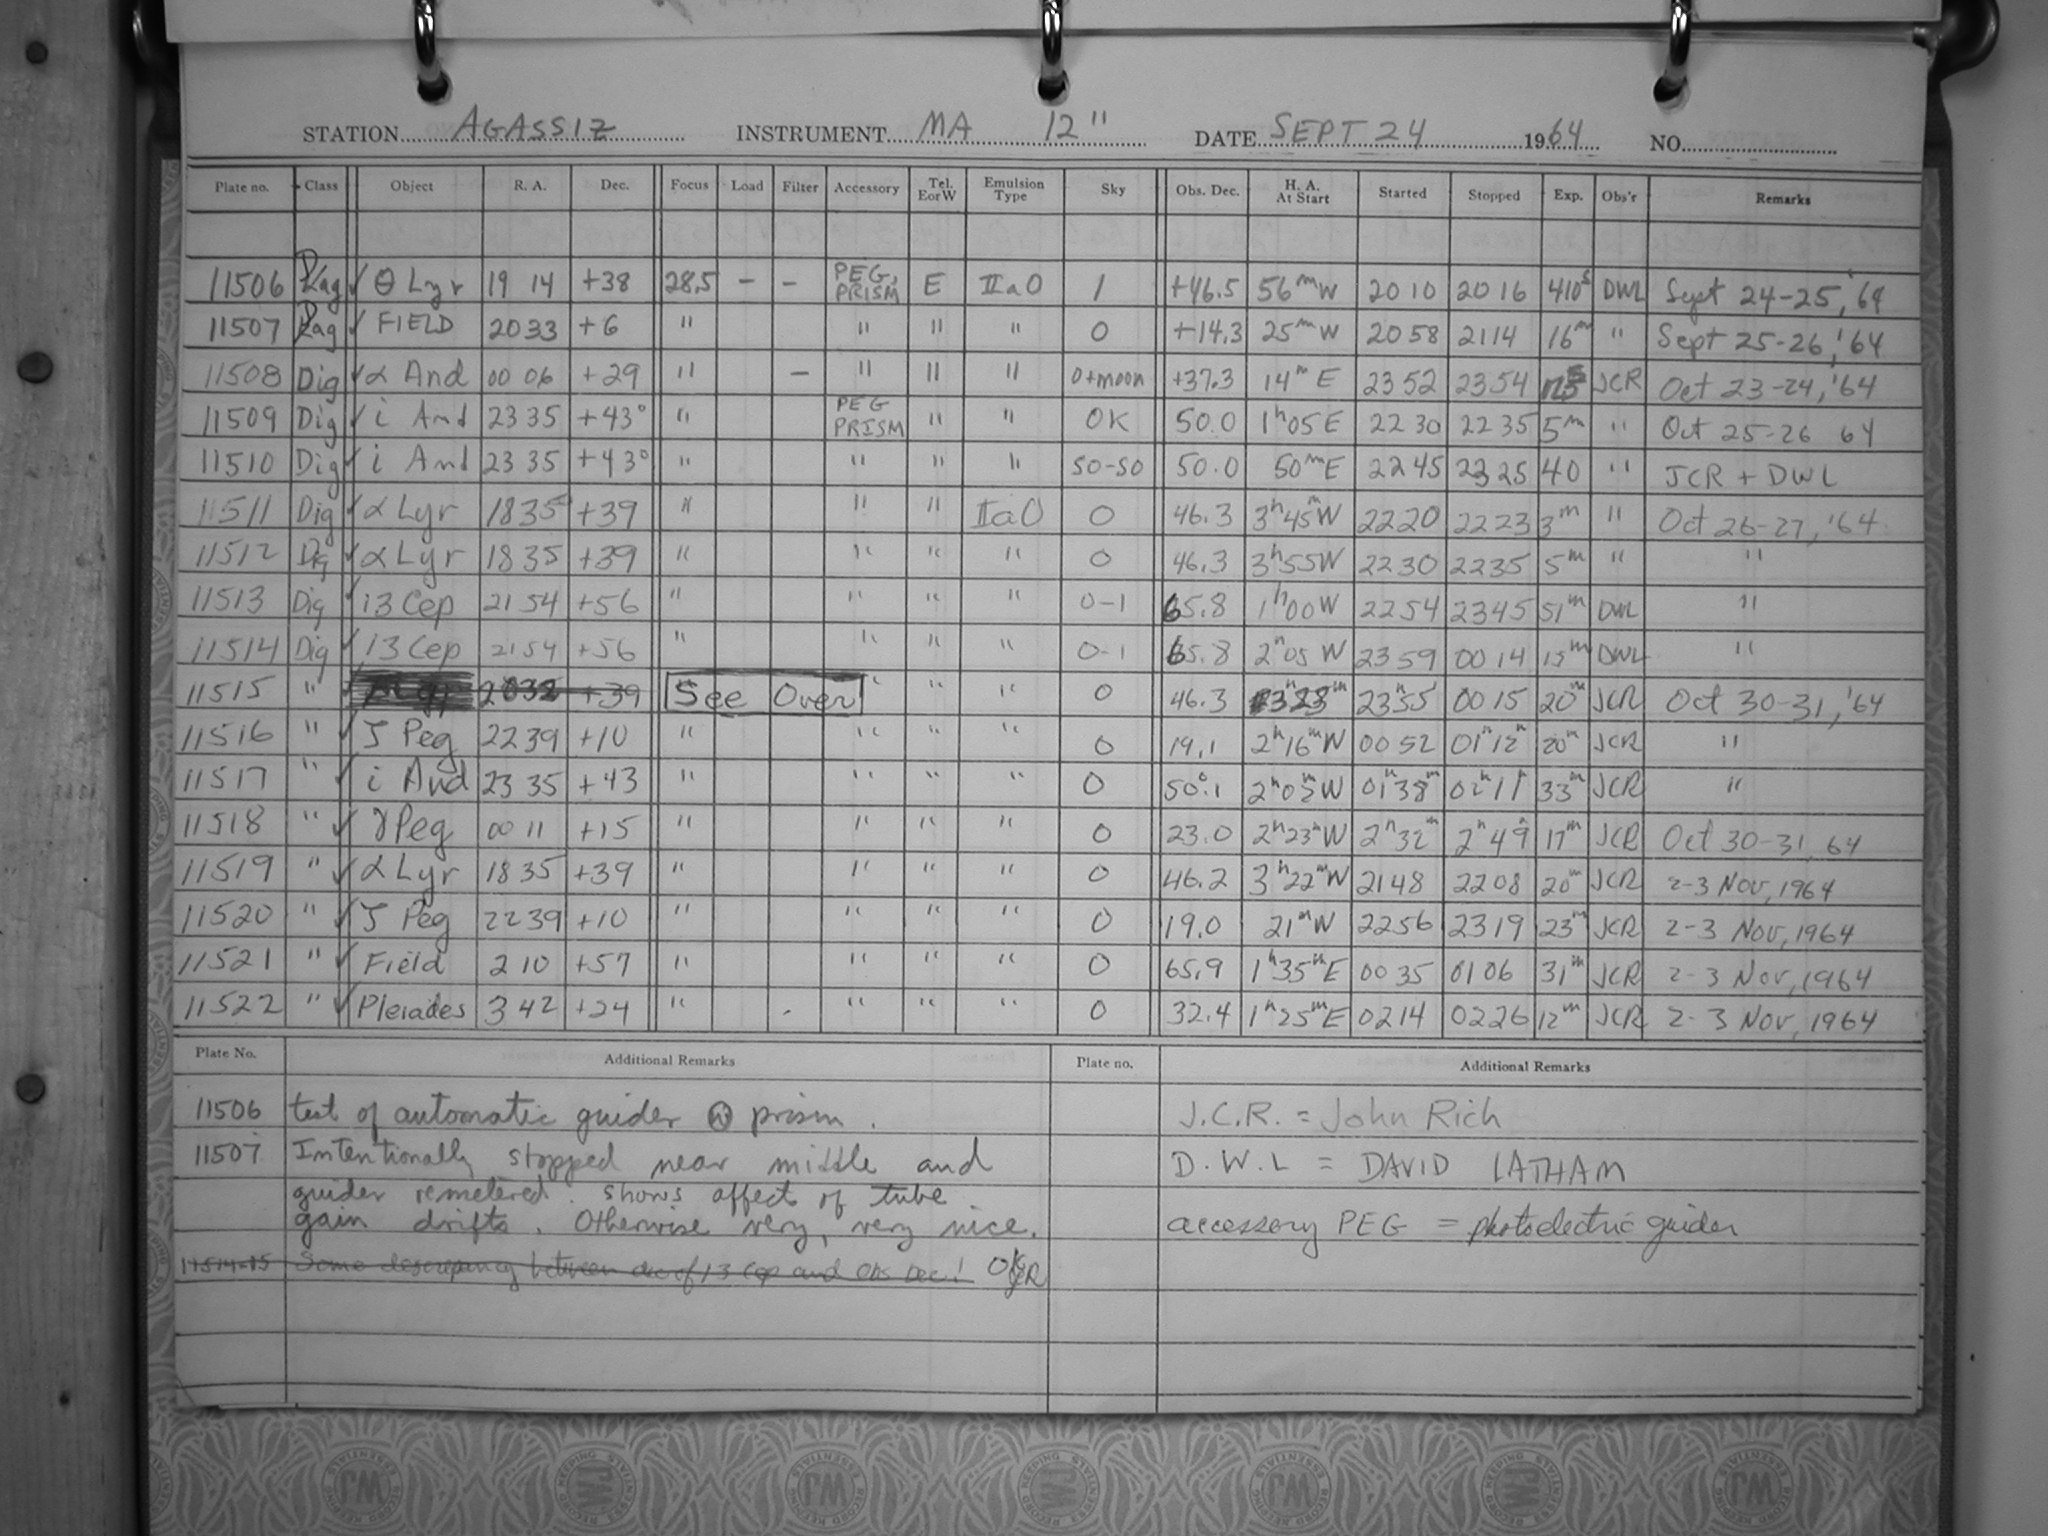 STATION AGASSIZ INSTRUMENT MA 12" DATE SEPT 24 1964 NO.
Plate no. Class Object R. A. Dec. Focus Load Filter Accessory Tel. E or W Emulsion Type Sky Obs. Dec. H. A. At Start Started Stopped Exp. Obs'r Remarks
11506 ✓ θ Lyr 19 14 +38 28.5 - - PEG, PRISM E IIaO 1 +46.5 56m W 20 10 20 16 410s DWL Sept 24-25, '64
11507 ✓ FIELD 20 33 +6 " " " " 0 +14.3 25m W 20 58 21 14 16m " Sept 25-26, '64
11508 Dig ✓ α And 00 06 +29 " - " " " 0+moon +37.3 14m E 23 52 23 54 JCR Oct 23-24, '64
11509 Dig ✓ i And 23 35 +43° " PEG PRISM " " OK 50.0 1h05 E 22 30 22 35 5m " Oct 25-26 64
11510 Dig ✓ i And 23 35 +43° " " " " SO-SO 50.0 50m E 22 45 23 25 40 " JCR + DWL
11511 Dig ✓ α Lyr 18 35 +39 " " " IIaO 0 46.3 3h45m W 22 20 22 23 3m " Oct 26-27, '64
11512 Dig ✓ α Lyr 18 35 +39 " " " " 0 46.3 3h55 W 22 30 22 35 5m " "
11513 Dig ✓ 13 Cep 21 54 +56 " " " " 0-1 65.8 1h00 W 22 54 23 45 51m DWL "
11514 Dig ✓ 13 Cep 21 54 +56 " " " " 0-1 65.8 2h05 W 23 59 00 14 15m DWL "
11515 " ✓ 2032 +39 See Over " " " 0 46.3 23h55 00 15 20m JCR Oct 30-31, '64
11516 " ✓ ζ Peg 22 39 +10 " " " " 0 19.1 2h16m W 00 52 01h12m 20m JCR "
11517 " ✓ i And 23 35 +43 " " " " 0 50.1 2h03m W 01h38m 02h11m 33m JCR "
11518 " ✓ γ Peg 00 11 +15 " " " " 0 23.0 2h23m W 2h32m 2h49m 17m JCR Oct 30-31, 64
11519 " ✓ α Lyr 18 35 +39 " " " " 0 46.2 3h22m W 21 48 22 08 20m JCR 2-3 Nov, 1964
11520 " ✓ ζ Peg 22 39 +10 " " " " 0 19.0 21m W 22 56 23 19 23m JCR 2-3 Nov, 1964
11521 " ✓ Field 2 10 +57 " " " " 0 65.9 1h35m E 00 35 01 06 31m JCR 2-3 Nov, 1964
11522 " ✓ Pleiades 3 42 +24 " " " " 0 32.4 1h25m E 02 14 02 26 12m JCR 2-3 Nov, 1964
Plate No. Additional Remarks Plate no. Additional Remarks
11506 test of automatic guider prism.
11507 Intentionally stopped near middle and
guider remetered. shows affect of tube
gain drifts. Otherwise very, very nice.
11514-15 Some descrepancy between dec of 13 Cep and Obs Dec! OK JCR
J.C.R. = John Rich
D.W.L = DAVID LATHAM
accessory PEG = photoelectric guider